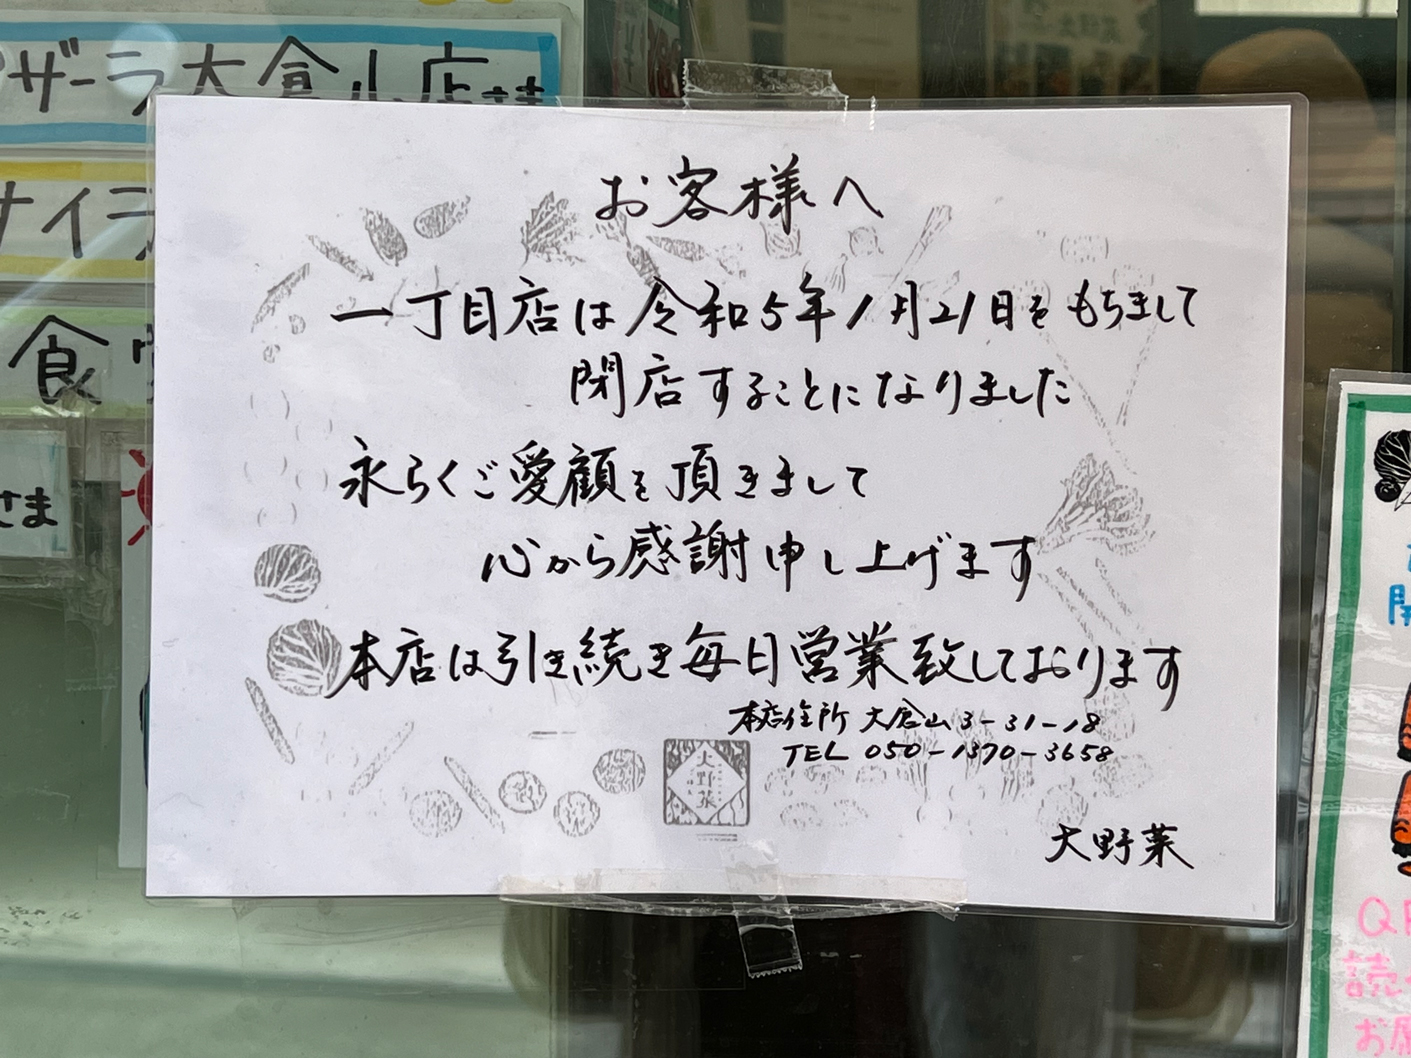 ザーラ大倉山店さま
サイラ
食
さま
お客様へ
一丁目店は令和5年1月21日をもちまして
閉店することになりました
永らくご愛顧を頂きまして
心から感謝申し上げます
本店は引き続き毎日営業致しております
本店住所 大倉山3-31-18
TEL 050-1370-3658
大野菜
大野菜
読
お願